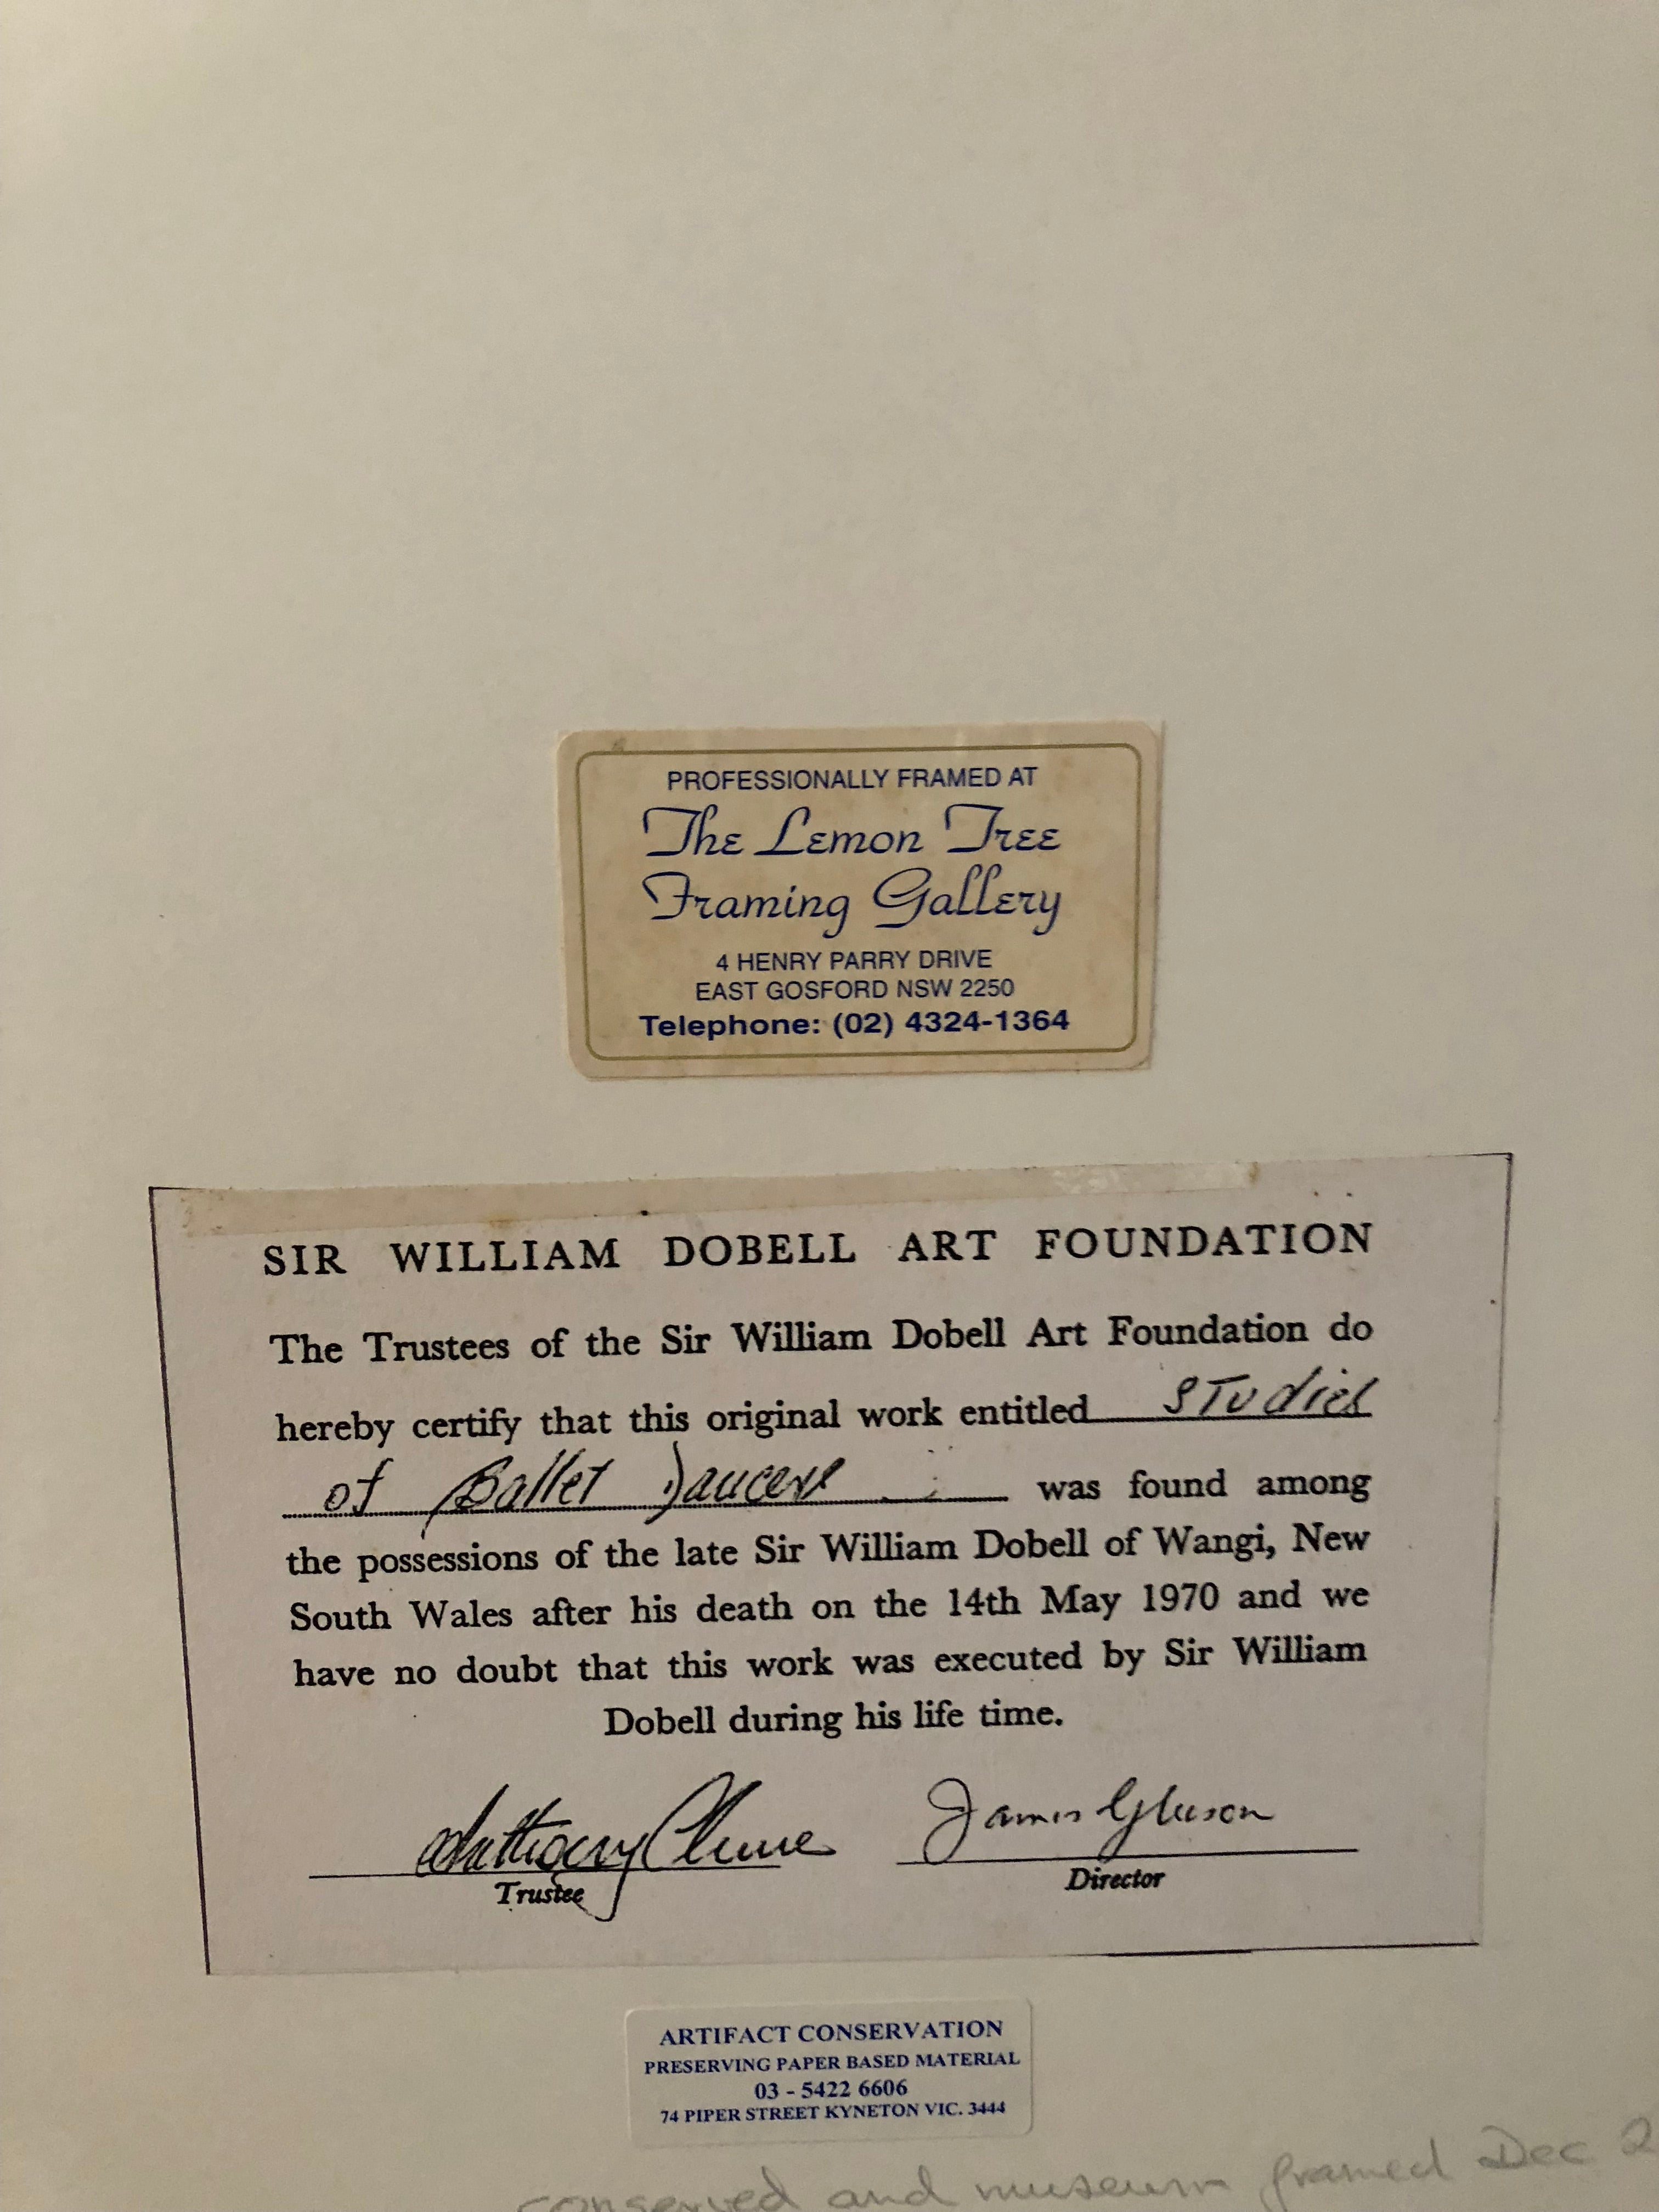 PROFESSIONALLY FRAMED AT
The Lemon Tree
Framing Gallery
4 HENRY PARRY DRIVE
EAST GOSFORD NSW 2250
Telephone: (02) 4324-1364
SIR WILLIAM DOBELL ART FOUNDATION
The Trustees of the Sir William Dobell Art Foundation do
hereby certify that this original work entitled Studies
of Ballet Dancers was found among
the possessions of the late Sir William Dobell of Wangi, New
South Wales after his death on the 14th May 1970 and we
have no doubt that this work was executed by Sir William
Dobell during his life time.
Anthony Clune James Gleeson
Trustee Director
ARTIFACT CONSERVATION
PRESERVING PAPER BASED MATERIAL
03 - 5422 6606
74 PIPER STREET KYNETON VIC. 3444
conserved and museum framed Dec 2